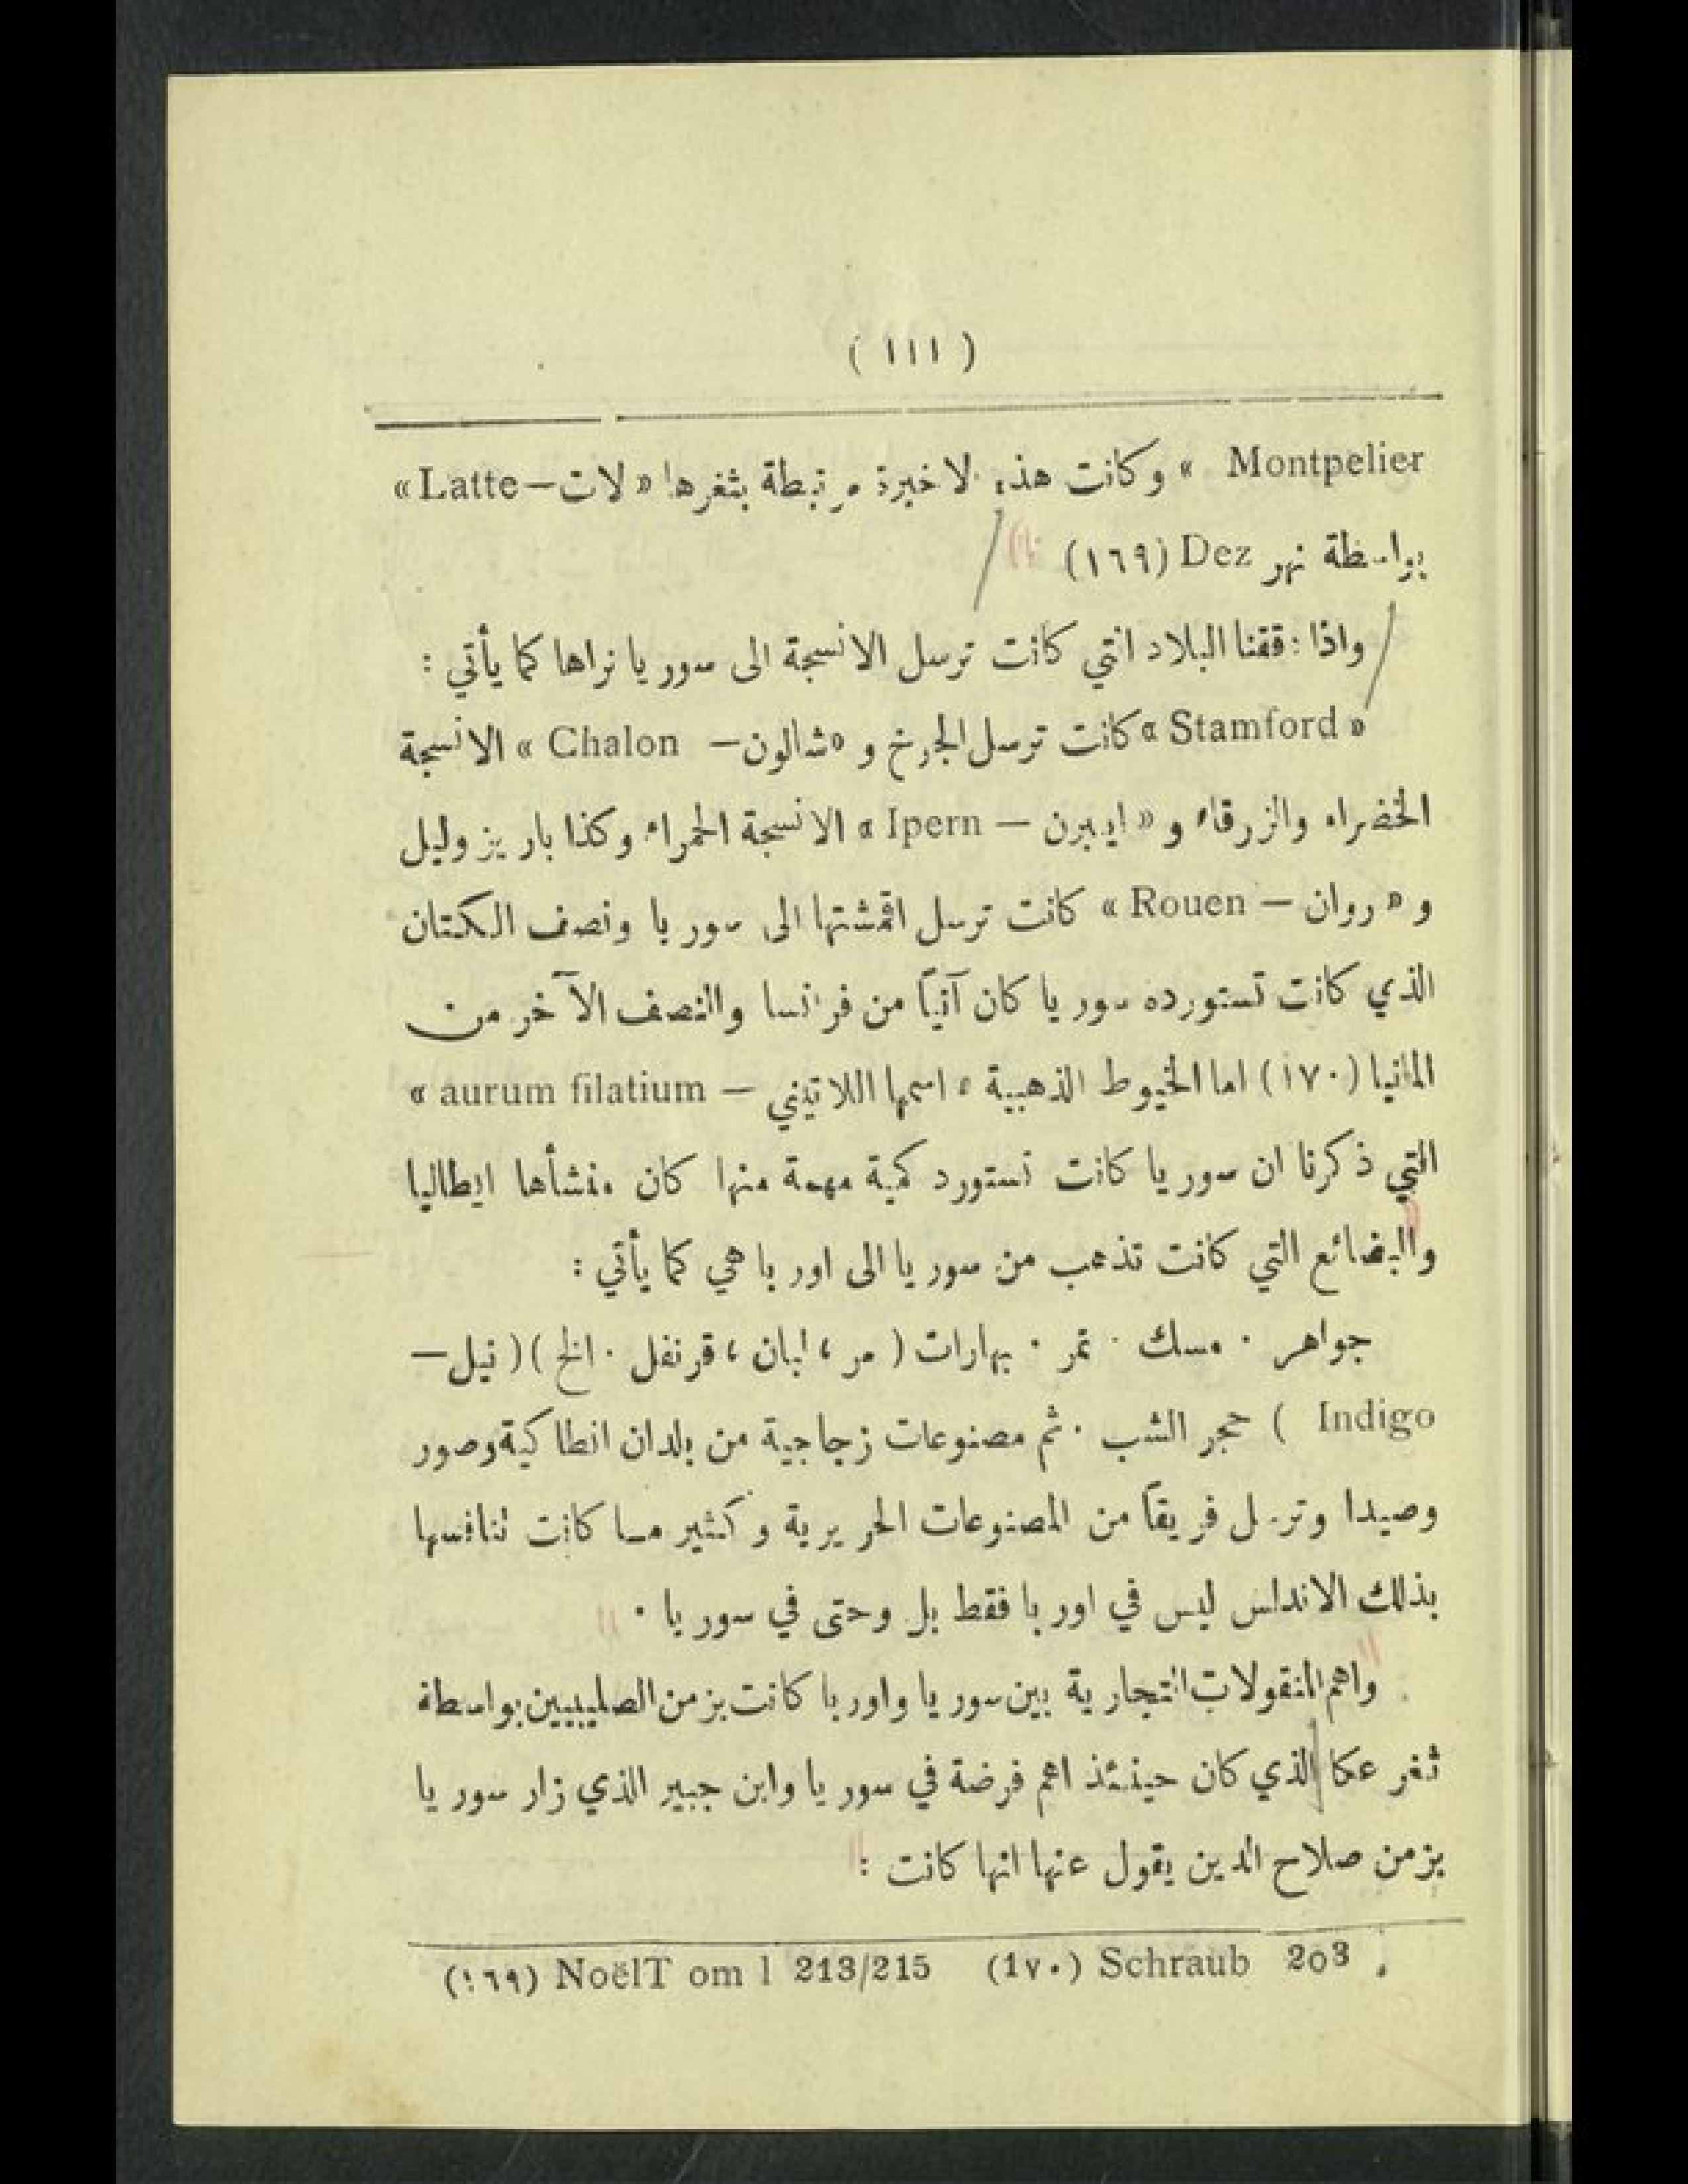 ( ١١١ )
Montpelier » وكانت هذه الاخيرة مرتبطة بثغرها « لات — Latte »
بواسطة نهر Dez (١٦٩)
واذا دققنا البلاد التي كانت ترسل الانسجة الى سوريا نراها كما يأتي :
« Stamford » كانت ترسل الجرخ و « شالون — Chalon » الانسجة
الخضراء والزرقاء و « ايبرن — Ipern » الانسجة الحمراء وكذا باريز وليل
و « روان — Rouen » كانت ترسل اقمشتها الى سوريا ونصف الكتان
الذي كانت تستورده سوريا كان آتياً من فرانسا والنصف الآخر من
المانيا (١٧٠) اما الخيوط الذهبية « اسمها اللاتيني — aurum filatium »
التي ذكرنا ان سوريا كانت تستورد كمية مهمة منها كان منشأها ايطاليا
والبضائع التي كانت تذهب من سوريا الى اوربا هي كما يأتي :
جواهر . مسك . تمر . بهارات ( مر ، لبان ، قرنفل . الخ ) ( نيل —
Indigo ) حجر الشب . ثم مصنوعات زجاجية من بلدان انطاكية وصور
وصيدا وترسل فريقاً من المصنوعات الحريرية وكثير مما كانت تنافسها
بذلك الاندلس ليس في اوربا فقط بل وحتى في سوريا .
واهم المنقولات التجارية بين سوريا واوربا كانت بزمن الصليبيين بواسطة
ثغر عكا الذي كان حينئذ اهم فرضة في سوريا وابن جبير الذي زار سوريا
بزمن صلاح الدين يقول عنها انها كانت :
(١٦٩) NoëlT om l 213/215 (١٧٠) Schraub 203